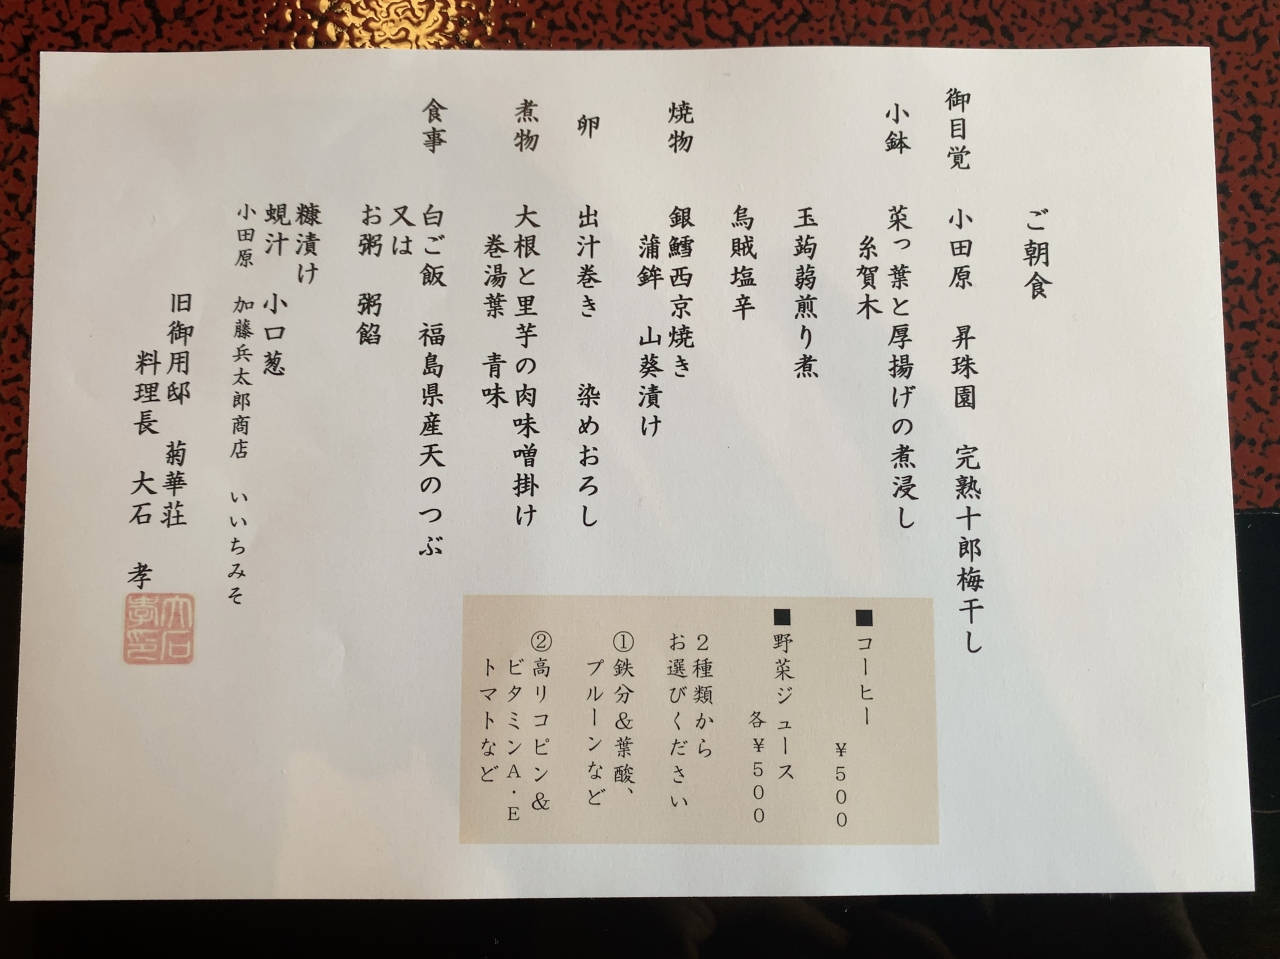 ご朝食
御目覚　小田原　昇珠園　完熟十郎梅干し
小鉢　菜っ葉と厚揚げの煮浸し
糸賀木
玉蒟蒻煎り煮
烏賊塩辛
焼物　銀鱈西京焼き
蒲鉾　山葵漬け
卵　出汁巻き　染めおろし
煮物　大根と里芋の肉味噌掛け
巻湯葉　青味
食事　白ご飯　福島県産天のつぶ
又は
お粥　粥餡
糠漬け
蜆汁　小口葱
小田原　加藤兵太郎商店　いいちみそ
旧御用邸　菊華荘
料理長　大石　孝
大石孝印
■コーヒー
￥５００
■野菜ジュース
各￥５００
２種類から
お選びください
①鉄分＆葉酸、
プルーンなど
②高リコピン＆
ビタミンＡ・Ｅ
トマトなど